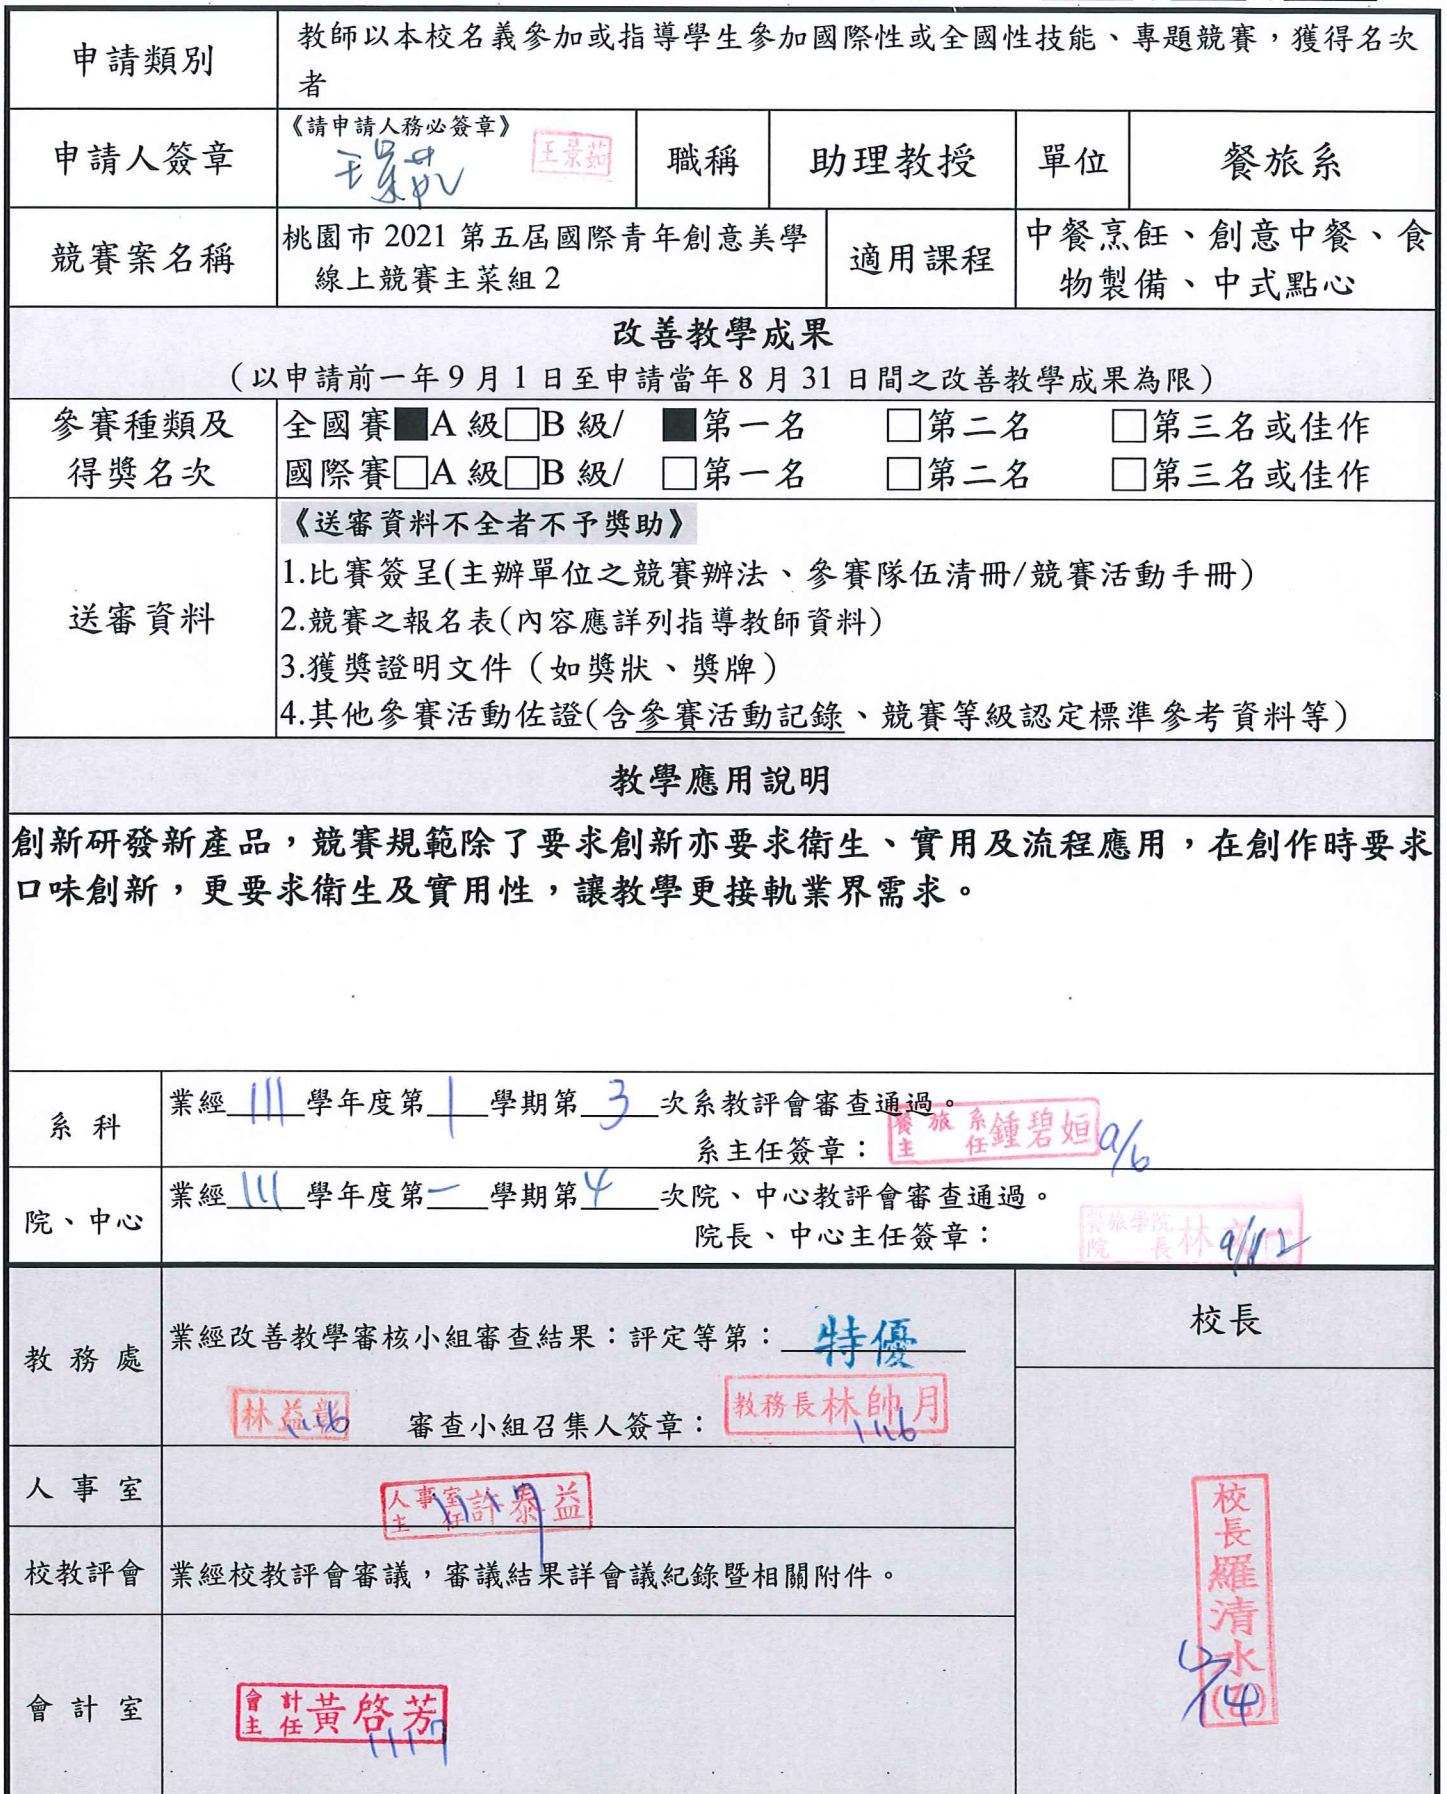 申請類別
教師以本校名義參加或指導學生參加國際性或全國性技能、專題競賽,獲得名次
者
申請人簽章
《請申請人務必簽章》
王景茹
王景茹
職稱
助理教授
單位
餐旅系
競賽案名稱
桃園市 2021 第五屆國際青年創意美學
線上競賽主菜組 2
適用課程
中餐烹飪、創意中餐、食
物製備、中式點心
改善教學成果
(以申請前一年 9 月 1 日至申請當年 8 月 31 日間之改善教學成果為限)
參賽種類及
得獎名次
全國賽■A 級□B 級/ ■第一名 □第二名 □第三名或佳作
國際賽□A 級□B 級/ □第一名 □第二名 □第三名或佳作
送審資料
《送審資料不全者不予獎助》
1.比賽簽呈(主辦單位之競賽辦法、參賽隊伍清冊/競賽活動手冊)
2.競賽之報名表(內容應詳列指導教師資料)
3.獲獎證明文件(如獎狀、獎牌)
4.其他參賽活動佐證(含參賽活動記錄、競賽等級認定標準參考資料等)
教學應用說明
創新研發新產品,競賽規範除了要求創新亦要求衛生、實用及流程應用,在創作時要求
口味創新,更要求衛生及實用性,讓教學更接軌業界需求。
系科
業經 111 學年度第 1 學期第 3 次系教評會審查通過。
系主任簽章:
餐旅系主任鍾碧姮 9/6
院、中心
業經 111 學年度第一學期第 4 次院、中心教評會審查通過。
院長、中心主任簽章:
餐旅學院院長林 9/12
教務處
業經改善教學審核小組審查結果:評定等第: 特優
林益彰 審查小組召集人簽章: 教務長林帥月
1116 1116
校長
人事室
人事室主任許泰益
1117
校教評會
業經校教評會審議,審議結果詳會議紀錄暨相關附件。
會計室
會計主任黃啓芳
1117
校長羅清水(乙)
12/14